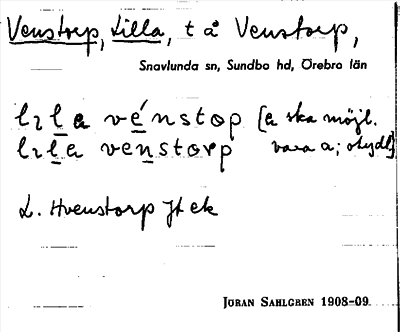 Venstorp, Lilla, t å Venstorp,
Snavlunda sn, Sundbo hd, Örebro län
lɩla vénstop [a ska möjl.
lɩla venstorp vara a; otydl]
L. Hvenstorp Jt ek
JÖRAN SAHLGREN 1908-09